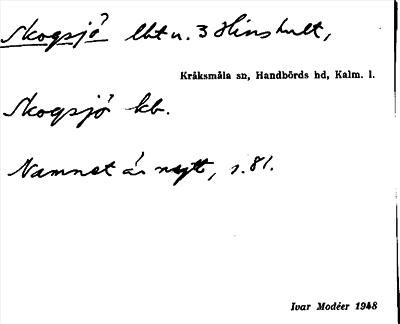 Skogsjö lht u. 3 Hinshult,
Kråksmåla sn, Handbörds hd, Kalm. l.
Skogsjö kb.
Namnet är nytt, s. 81.
Ivar Modéer 1948